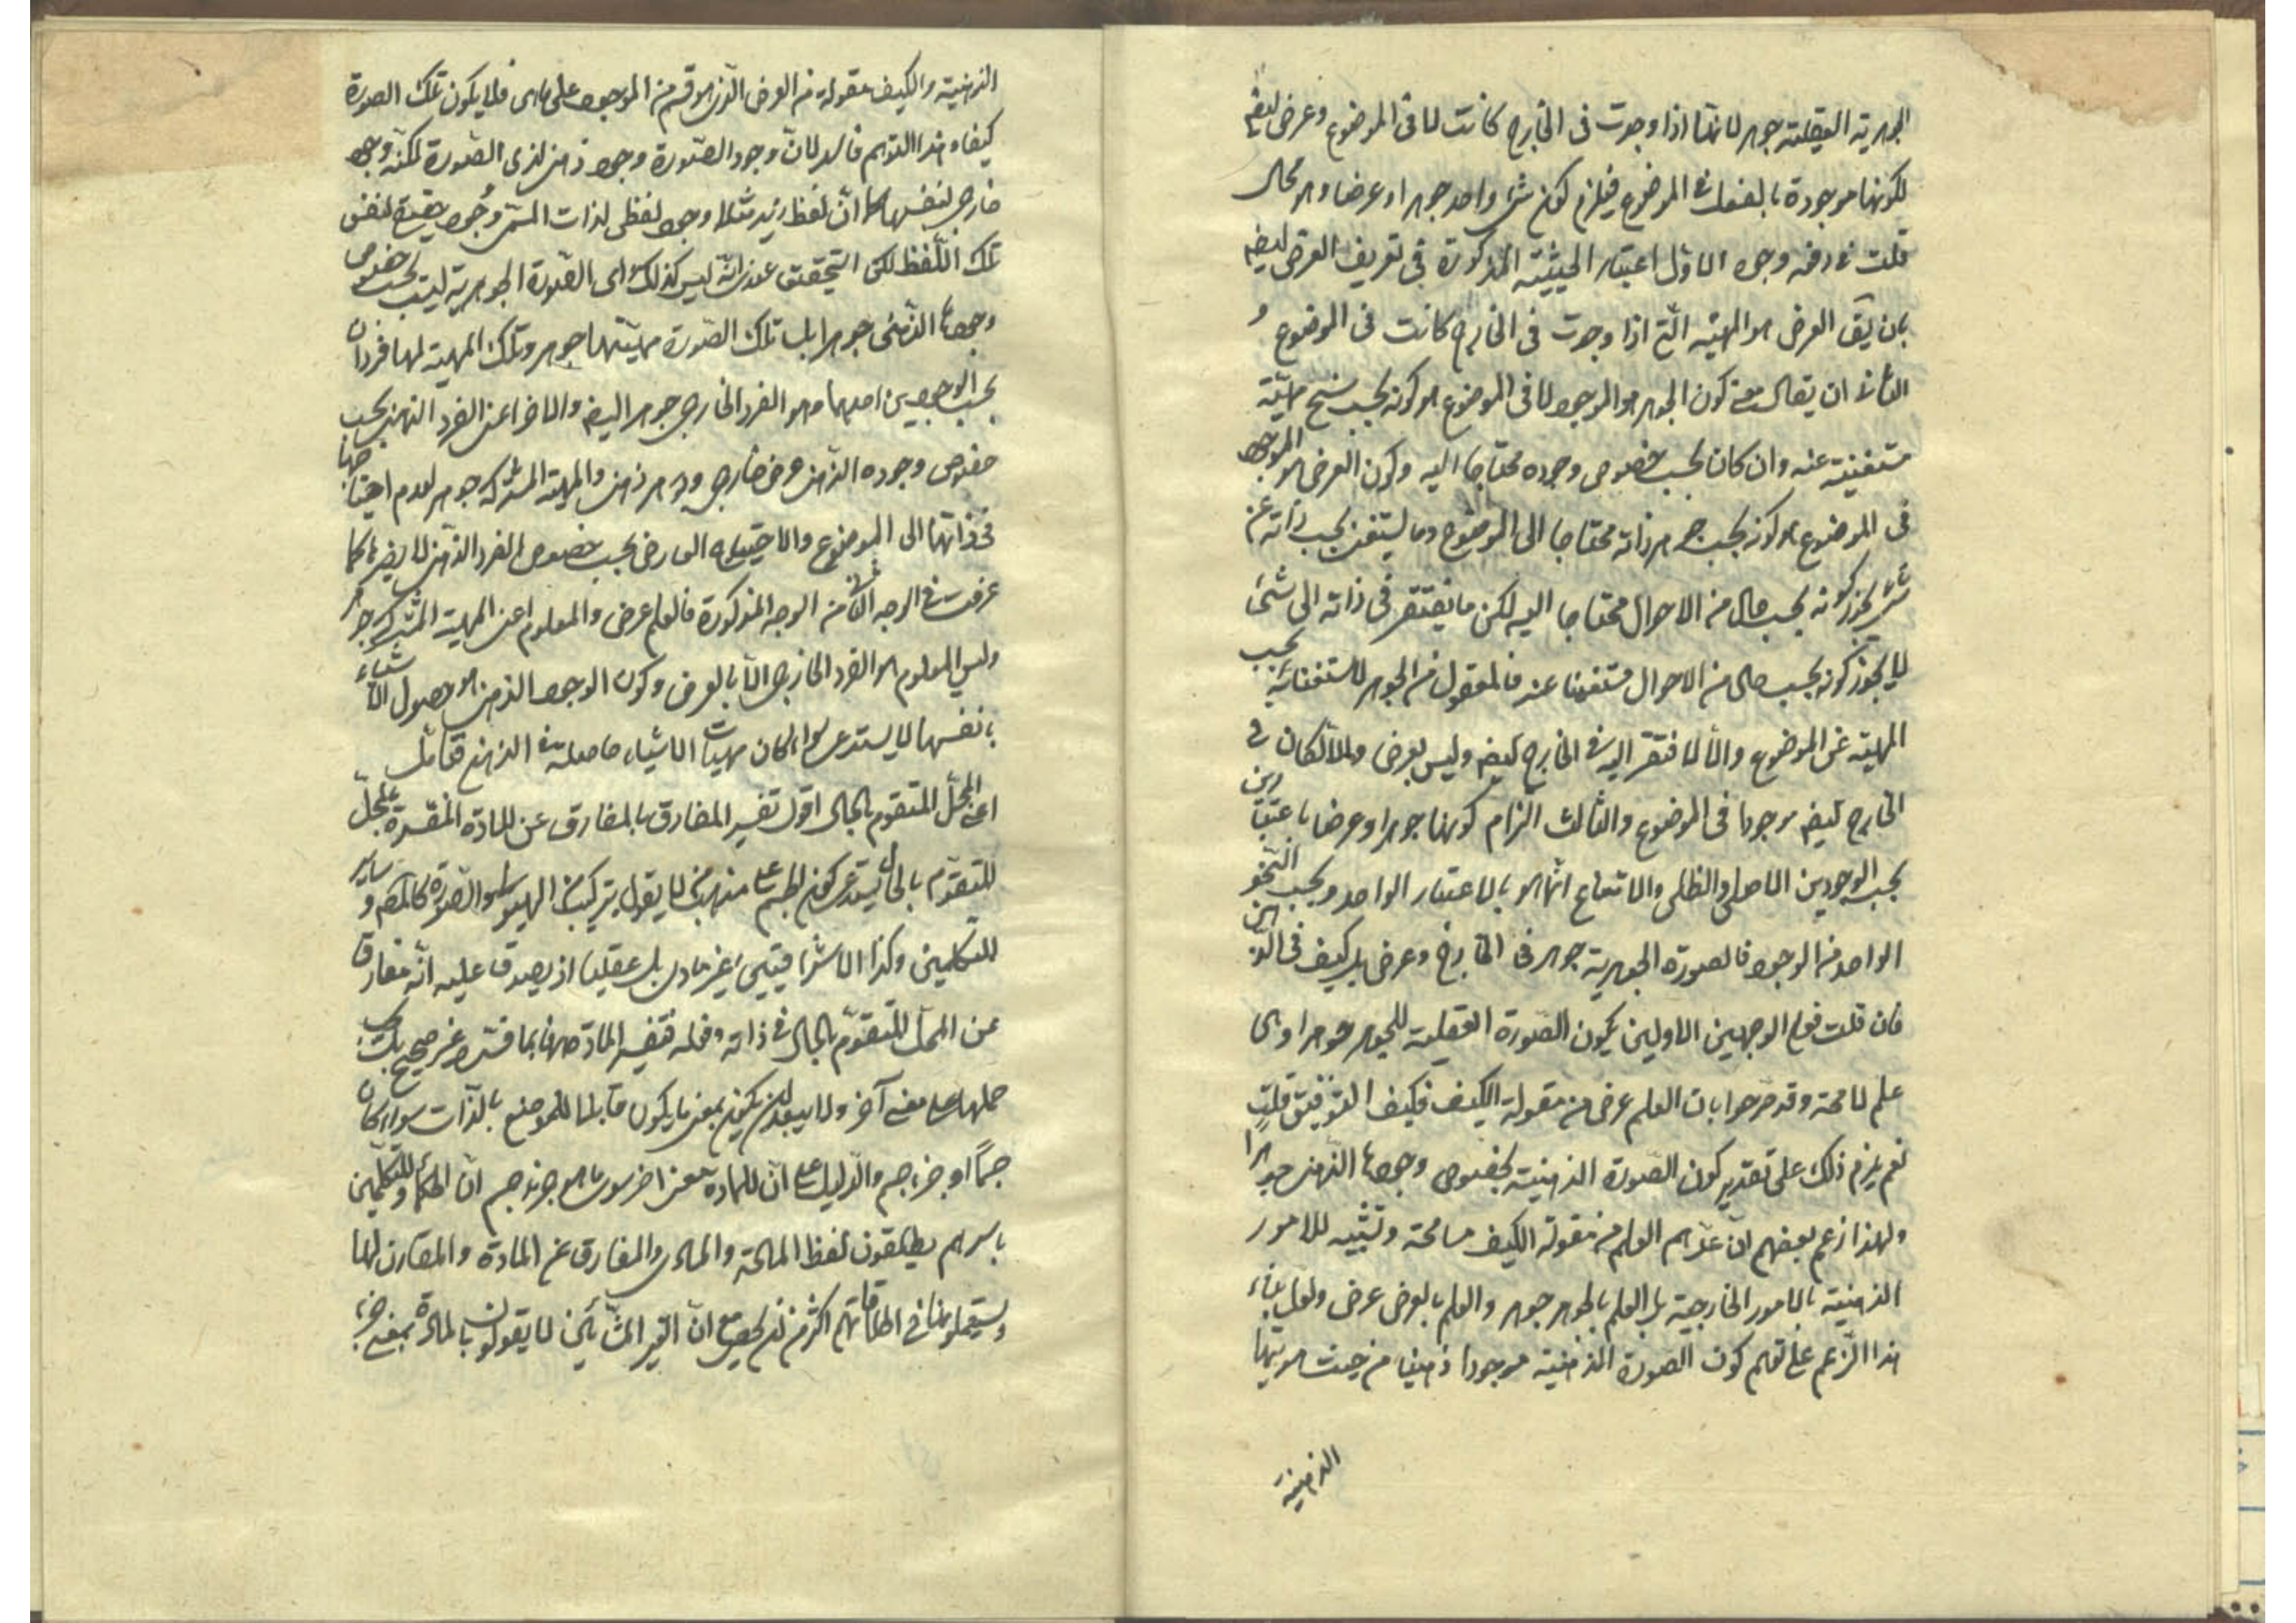 الجوهرية العقلية جوهر لانها اذا وجدت فى الخارج كانت لا فى الموضوع وعرض ايضا
لكونها موجودة بالفعل فى الموضوع فيلزم كون شئ واحد جوهرا وعرضا وهو محال
قلت فى دفعه وجوه الاول اعتبار الحيثية المذكورة فى تعريف العرض ايضا
بان يق العرض هو المهية التى اذا وجدت فى الخارج كانت فى الموضوع و
الثانى ان يقال معنى كون الجوهر هو الموجود لا فى الموضوع هو كونه بحسب سنخ مهيته
مستغنية عنه وان كان بحسب خصوص وجوده محتاجا اليه وكون العرض هو الموجود
فى الموضوع هو كونه بحسب جوهر ذاته محتاجا الى الموضوع وما يستغنى بحسب ذاته عن
شئ يجوز كونه بحسب حال من الاحوال محتاجا اليه لكن ما يفتقر فى ذاته الى شئ
لا يجوز كونه بحسب حال من الاحوال مستغنيا عنه فالمعقول من الجوهر لاستغنائه بحسب
المهية عن الموضوع والا لافتقر اليه فى الخارج ايضا وليس بعرض والا لكان فى
الخارج ايضا موجودا فى الموضوع والثالث التزام كونها جوهرا وعرضا باعتبارين
بحسب الوجودين الاصلى والظلى والامتناع انما هو بالاعتبار الواحد وبحسب النحو
الواحد من الوجود فالصورة الجوهرية جوهر فى الخارج وعرض بل كيف فى الذهن
فان قلت فعلى الوجهين الاولين يكون الصورة العقلية للجوهر جوهرا وهى
علم لا محة وقد صرحوا بان العلم عرض من مقولة الكيف فكيف التوفيق قلت
نعم يلزم ذلك على تقدير كون الصورة الذهنية بخصوص وجودها الذهنى جوهرا
ولهذا زعم بعضهم ان عدهم العلم من مقولة الكيف مسامحة وتشبيه للامور
الذهنية بالامور الخارجية بل العلم بالجوهر جوهر والعلم بالعرض عرض ولعل بناء
هذا الزعم على توهم كون الصورة الذهنية موجودا ذهنيا من حيث هويتها
الذهنية
الذهنية والكيف مقولة من العرض الذى هو قسم من الموجود على فلا يكون تلك الصورة
كيفا وهذا التوهم فاسد لان وجود الصورة وجود ذهنى لذى الصورة لكنه وجود
خارجى لنفسها كما ان لفظ زيد مثلا وجود لفظى لذات المسمى وجود حقيقة لنفس
تلك اللفظ لكن التحقيق عندى انه ليس كذلك اى الصورة الجوهرية ليست بحسب خصوص
وجودها الذهنى جوهرا بل تلك الصورة مهيتها جوهر وتلك المهية لها فردان
بحسب الوجودين احدهما وهو الفرد الخارجى جوهر ايضا والاخر اعنى الفرد الذهنى بحسب
خصوص وجوده الذهنى عرض خارجى وجوهر ذهنى والمهية المشتركة جوهر لعدم احتياجها
فى ذاتها الى الموضوع والاحتياج العارض بحسب خصوص الفرد الذهنى لا يضرها كما
عرفت فى الوجه الثانى من الوجوه المذكورة فالعلم عرض والمعلوم اعنى المهية المشتركة جوهر
وليس المعلوم هو الفرد الخارجى الا بالعرض وكون الوجود الذهنى هو حصول الاشياء
بانفسها لا يستدعى سوى كون مهيات الاشياء حاصلة فى الذهن فتامل
اعنى المحل المتقوم بالحال اقول تفسير المفارق بالمفارق عن المادة المفسرة بالمحل
المتقوم بالحال يستدعى كون الجسم على مذهب من لا يقول بتركبه من الهيولى والصورة كالمص وساير
المتكلمين وكذا الاشراقيين غير مادى بل عقليا اذ يصدق عليه انه مفارق
عن المحل المتقوم بالحال فى ذاته وفعله فتفسير المادة ههنا بما فسره غير صحيح بل يجب
حملها على معنى آخر ولا يبعد ان يكون بمعنى ما يكون قابلا للوضع بالذات سواء كان
جسما او جزء جسم والدليل على ان للمادة معنى اخر سوى ما هو جزء جسم ان الحكماء والمتكلمين
باسرهم يطلقون لفظ المادة والمادى والمفارق عن المادة والمقارن لها
ويستعملونها فى اطلاقاتهم اكثر من ان يحصى مع ان الغير المشائين لا يقولون بالمادة بمعنى جزء